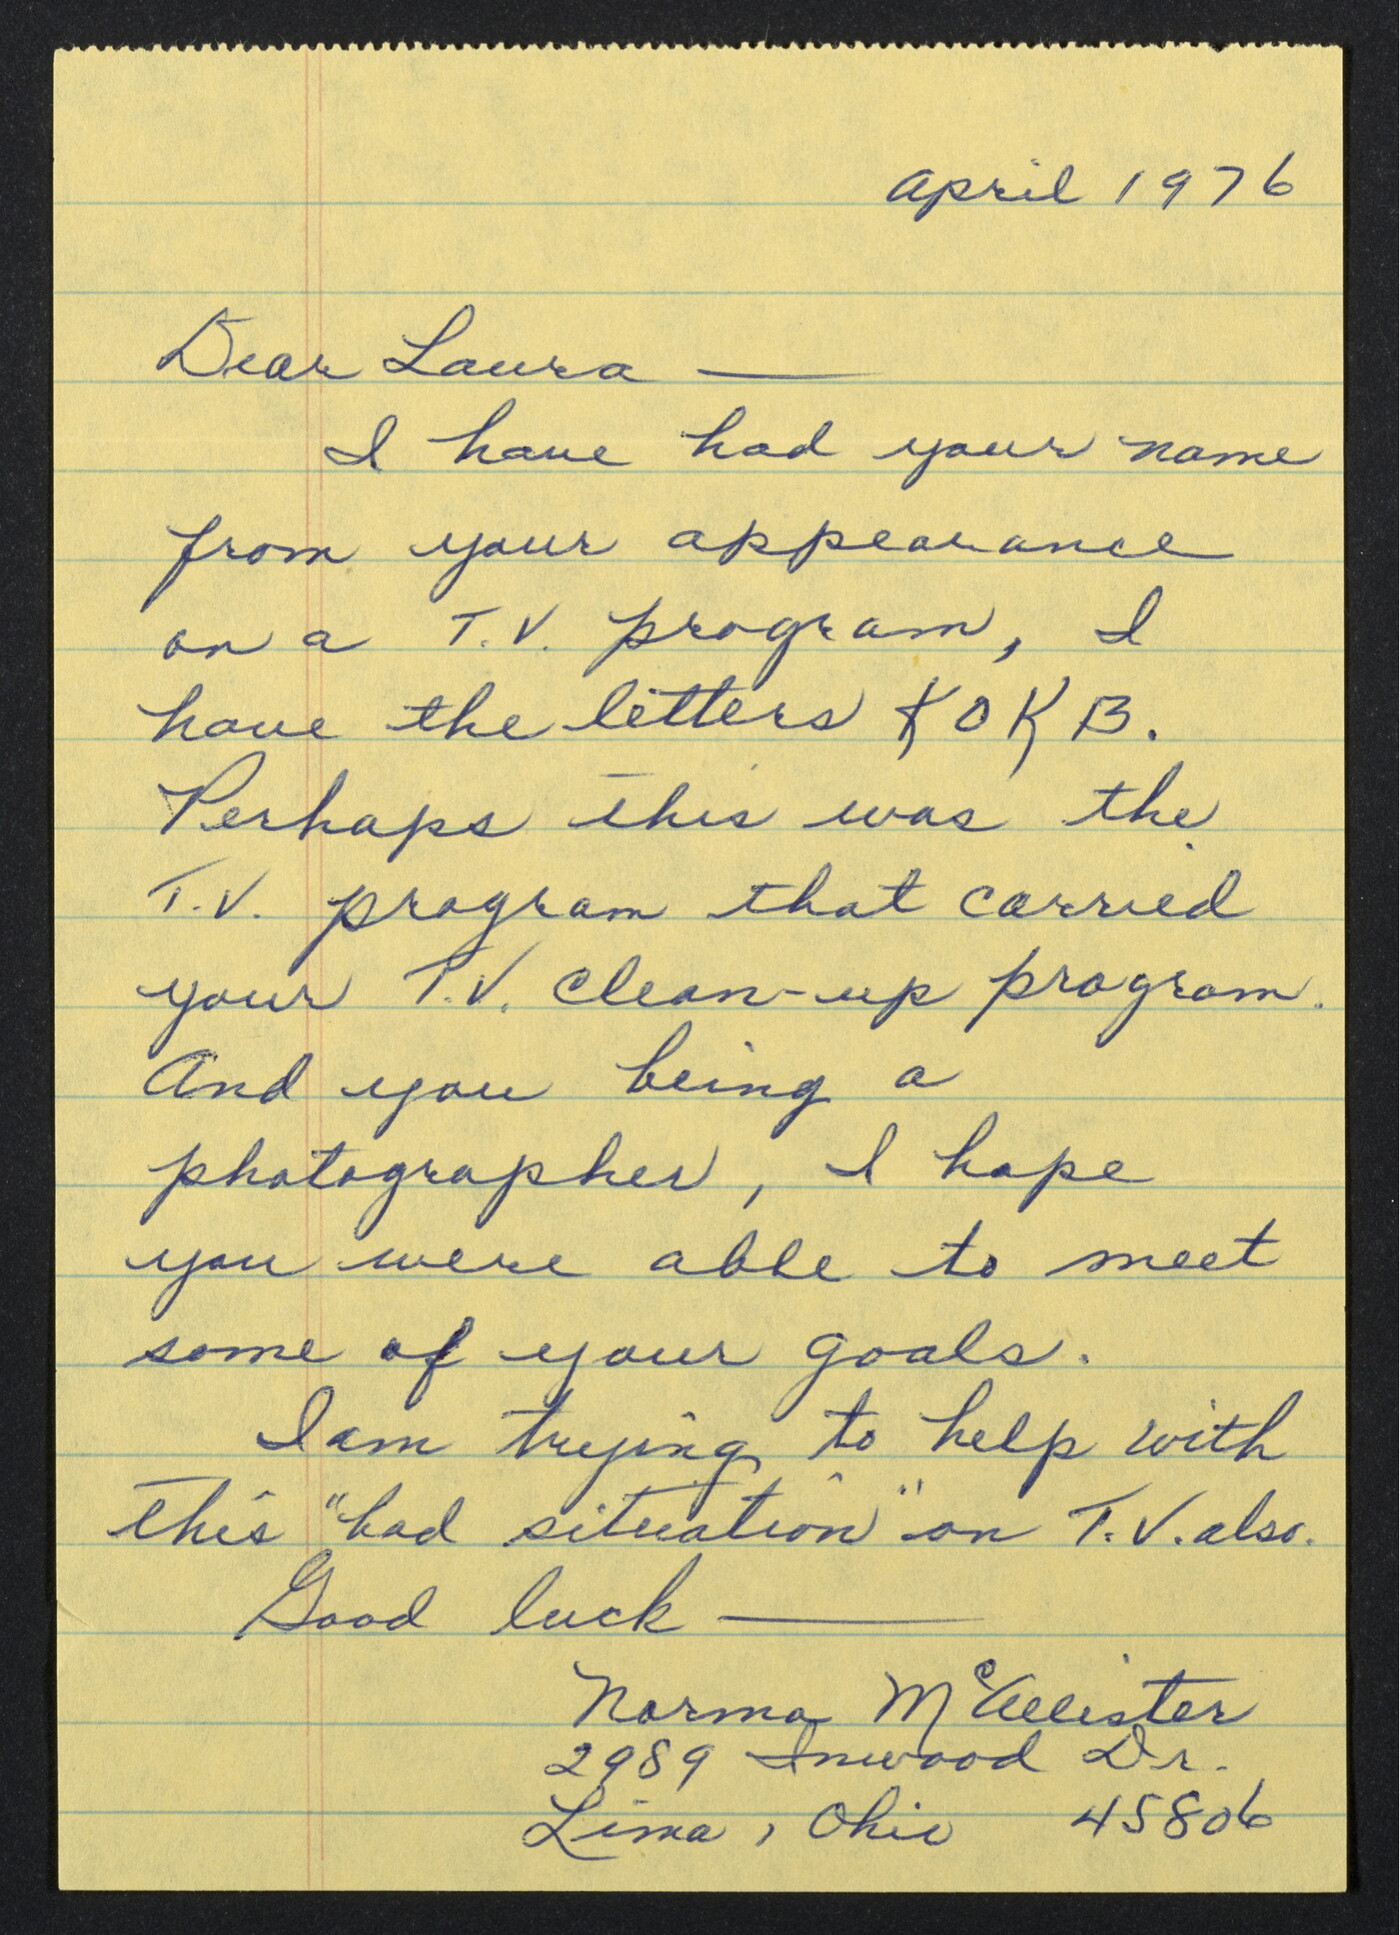 April 1976
Dear Laura —
I have had your name
from your appearance
on a T.V. program, I
have the letters KOKB.
Perhaps this was the
T.V. program that carried
your T.V. clean-up program.
And you being a
photographer, I hope
you were able to meet
some of your goals.
I am trying to help with
this "bad situation" on T.V. also.
Good luck —
Norma McAllister
2989 Inwood Dr.
Lima, Ohio 45806